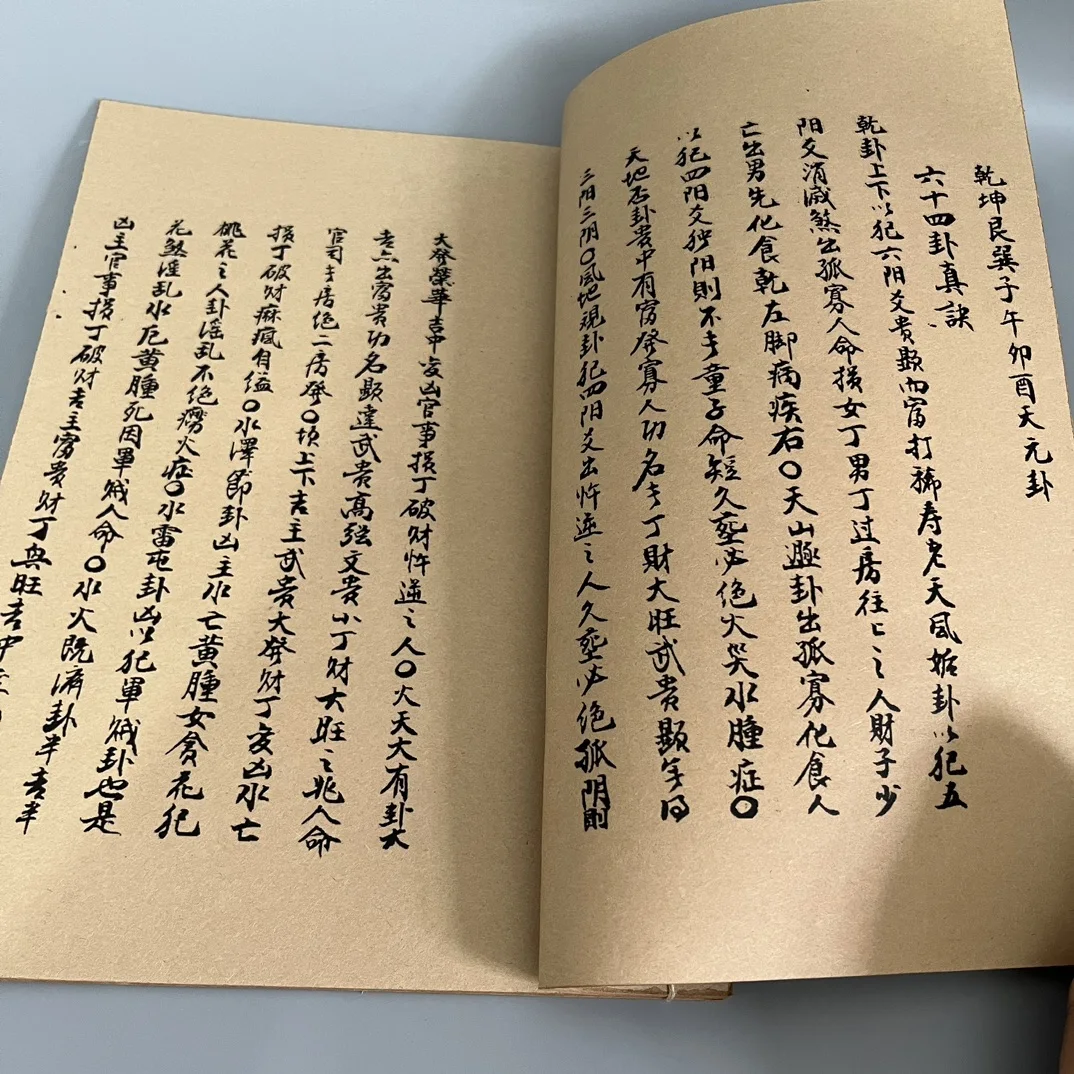 乾坤艮巽子午卯酉天元卦
六十四卦真訣
乾卦上下以犯六阳爻贵顯而富打稀寿老天風姤卦以犯五
阳爻消减煞出孤寡人命损女丁男丁过房往亡之人財子少
亡出男先化食乾左脚病疾右〇天山遯卦出孤寡化食人
以犯四阳爻独阳則不吉童子命短久塟必绝火哭水腫症〇
天地否卦贵中有富發寡人功名吉丁財大旺武贵顯
三阳三阴〇風地現卦犯四阳爻出忤逆之人久塟必绝孤阴則
大發榮華吉中变凶官事损丁破财忤逆之人〇火天大有卦大
吉六出富贵功名顯達武贵高强文贵小丁财大旺之兆人命
官司吉房绝二房發〇坎上下吉主武贵大發财丁变凶水亡
损丁破财麻瘋自缢〇水澤節卦凶主水亡黄腫女貪花犯
桃花之人卦滛乱不绝癆火症〇水雷屯卦凶以犯軍贼卦也是
花煞滛乱水厄黄腫死因軍贼人命〇水火既濟卦半吉半
凶主官事损丁破财吉主富贵财丁兴旺吉中